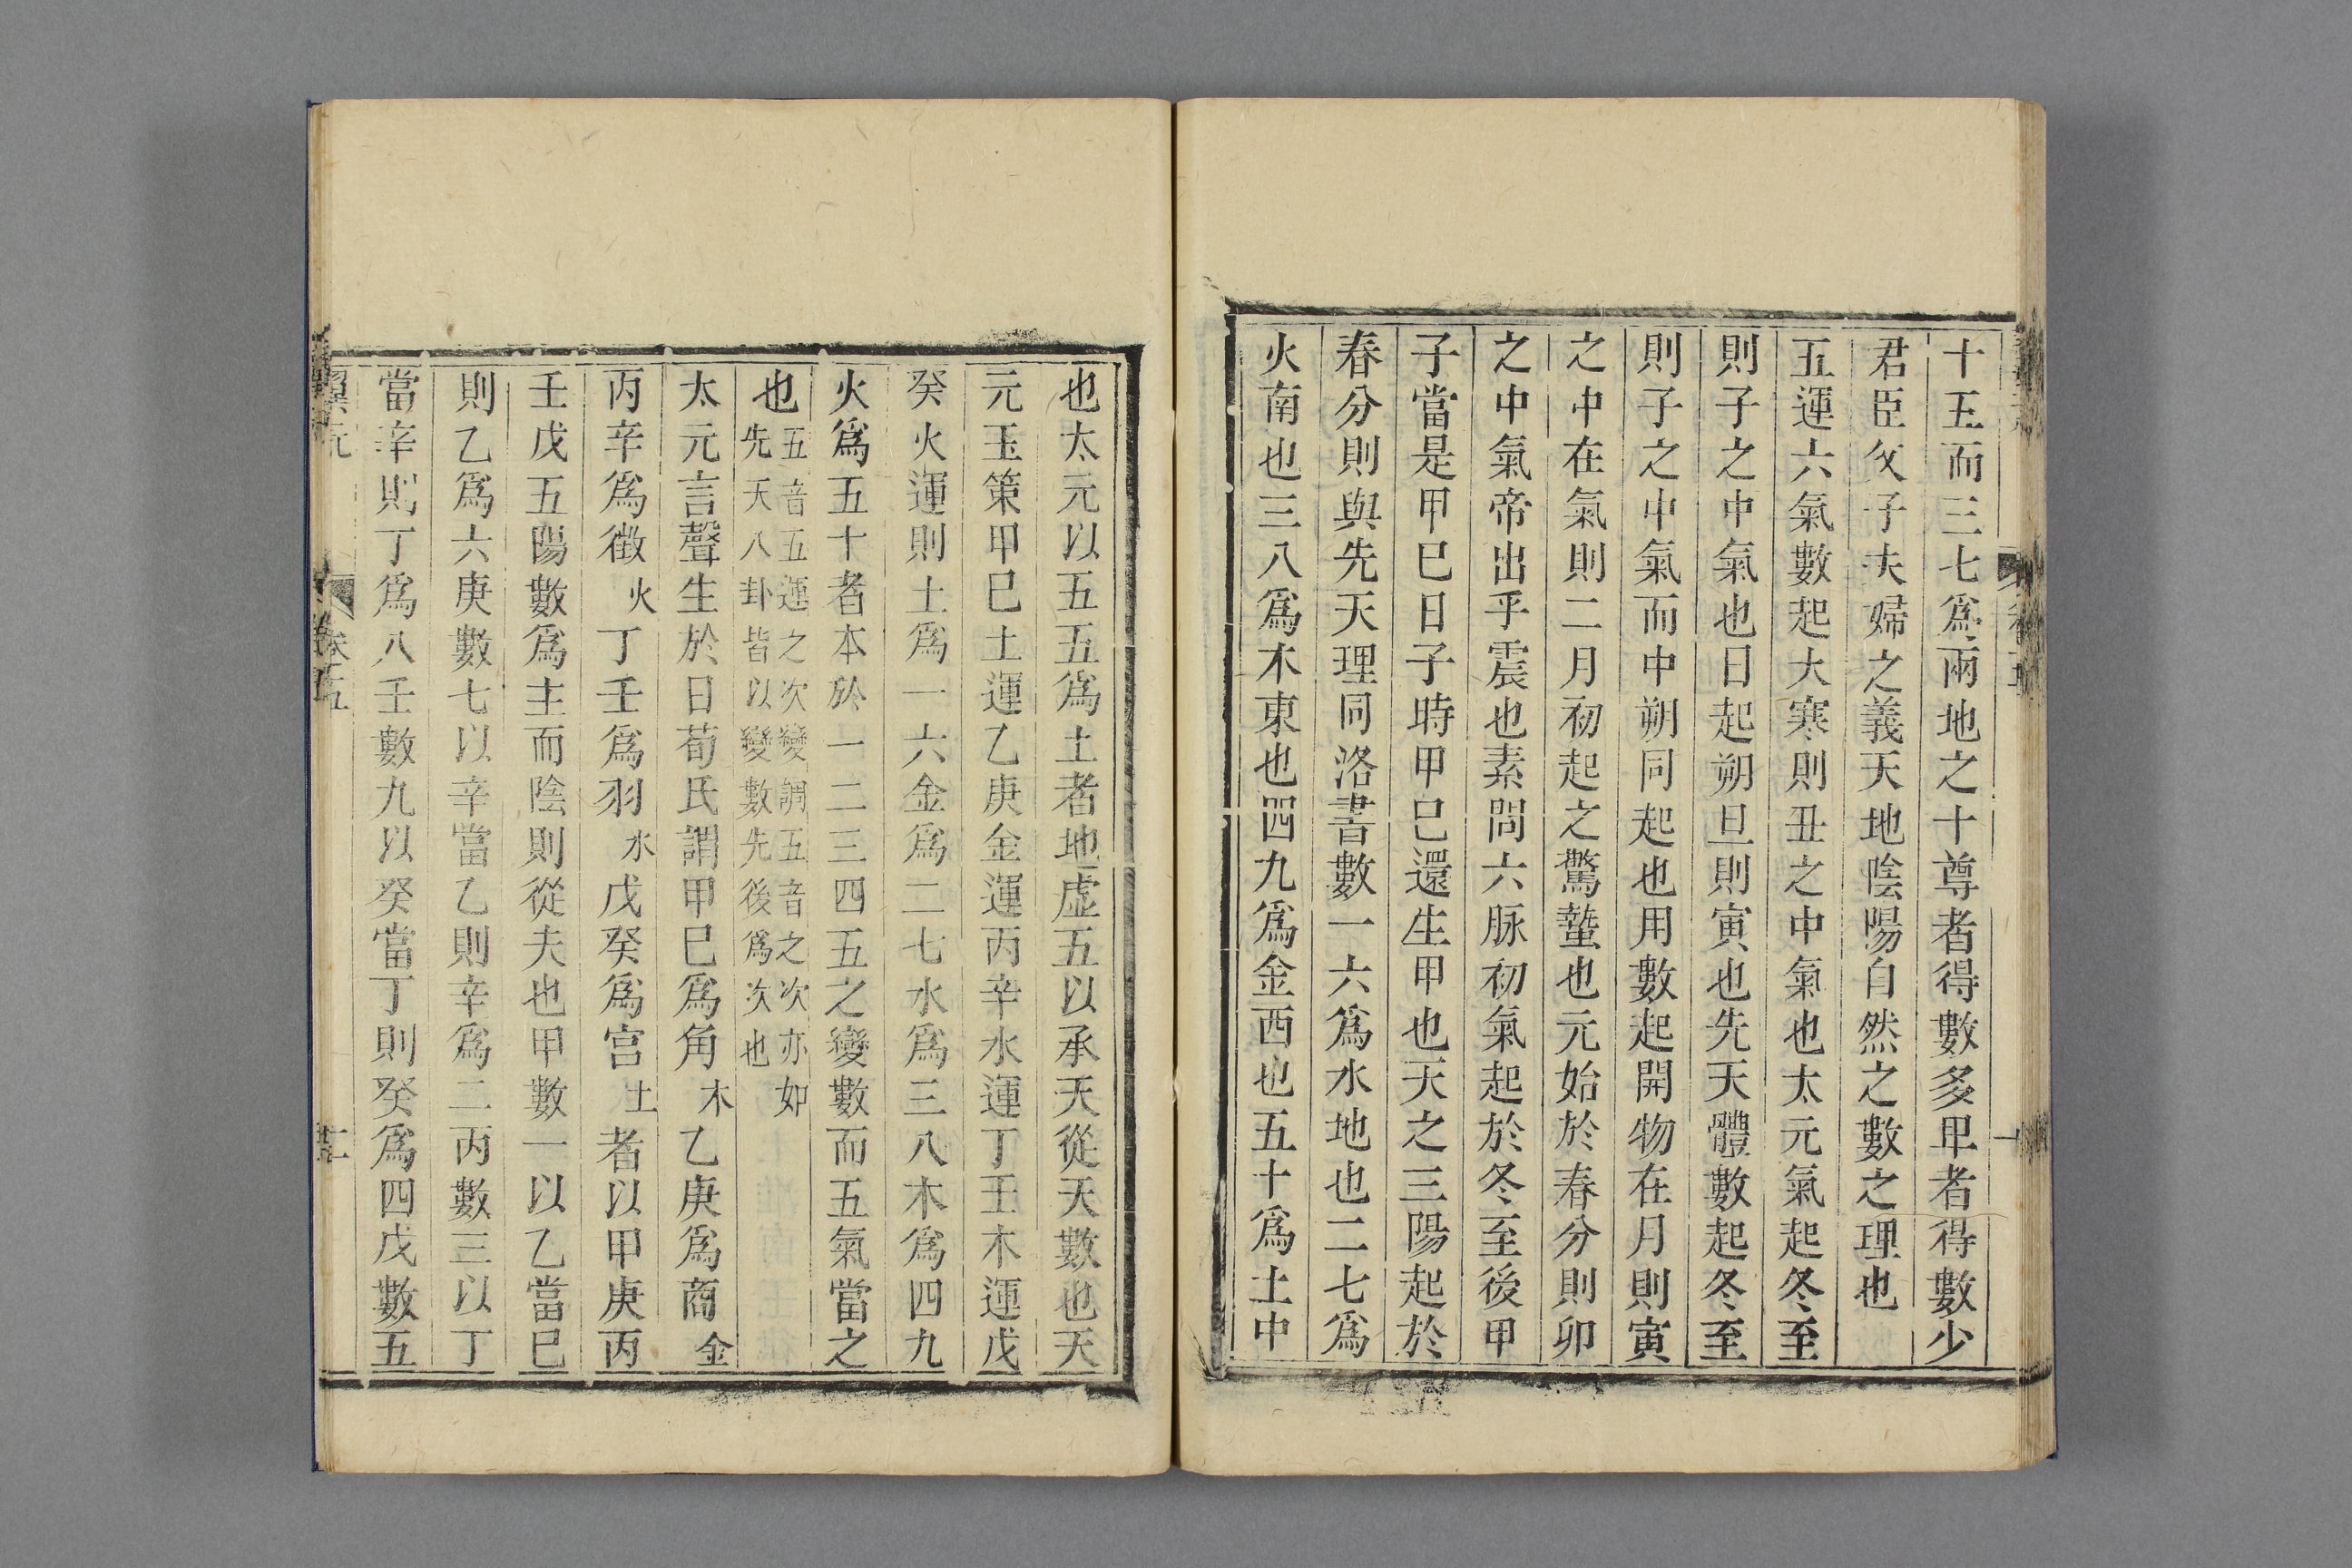 十五而三七爲兩地之十尊者得數多卑者得數少
君臣父子夫婦之義天地陰陽自然之數之理也
五運六氣數起大寒則丑之中氣也太元氣起冬至
則子之中氣也日起朔旦則寅也先天體數起冬至
則子之中氣而中朔同起也用數起開物在月則寅
之中在氣則二月初起之驚蟄也元始於春分則卯
之中氣帝出乎震也素問六脉初氣起於冬至後甲
子當是甲巳日子時甲巳還生甲也天之三陽起於
春分則與先天理同洛書數一六爲水地也二七爲
火南也三八爲木東也四九爲金西也五十爲土中
也太元以五五爲土者地虛五以承天從天數也天
元玉策甲巳土運乙庚金運丙辛水運丁壬木運戊
癸火運則土爲一六金爲二七水爲三八木爲四九
火爲五十者本於一二三四五之變數而五氣當之
也五音五運之次變調五音之次亦如
先天八卦皆以變數先後爲次也
太元言聲生於日荀氏謂甲巳爲角木乙庚爲商金
丙辛爲徵火丁壬爲羽水戊癸爲宫土者以甲庚丙
壬戊五陽數爲主而陰則從夫也甲數一以乙當巳
則乙爲六庚數七以辛當乙則辛爲二丙數三以丁
當辛則丁爲八壬數九以癸當丁則癸爲四戊數五
翼元 卷五 十二